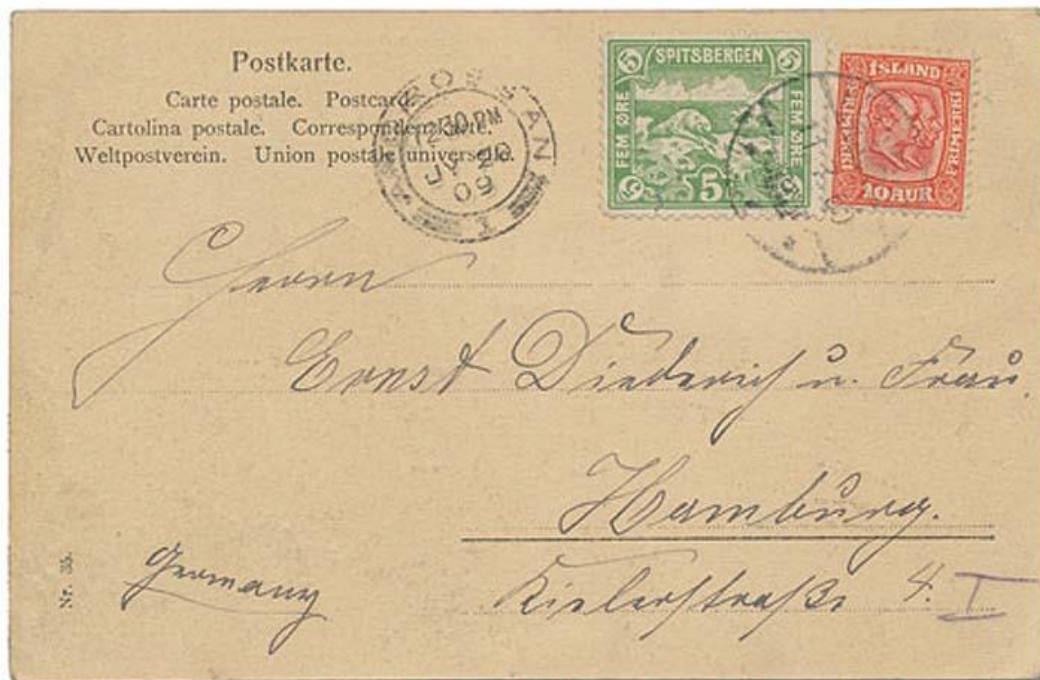 Postkarte.
Carte postale. Postcard.
Cartolina postale. Correspondenzkarte.
Weltpostverein. Union postale universelle.
ARDROSSAN
12 30 PM
JY 20
09
1
5 SPITSBERGEN 5
FEM ØRE
FEM ØRE
5 5
ISLAND
FRIMERKI
10 AUR
Herrn
Ernst Diederich u. Frau.
Hamburg.
Kielerstraße 4. I
Germany
Nr. 35.